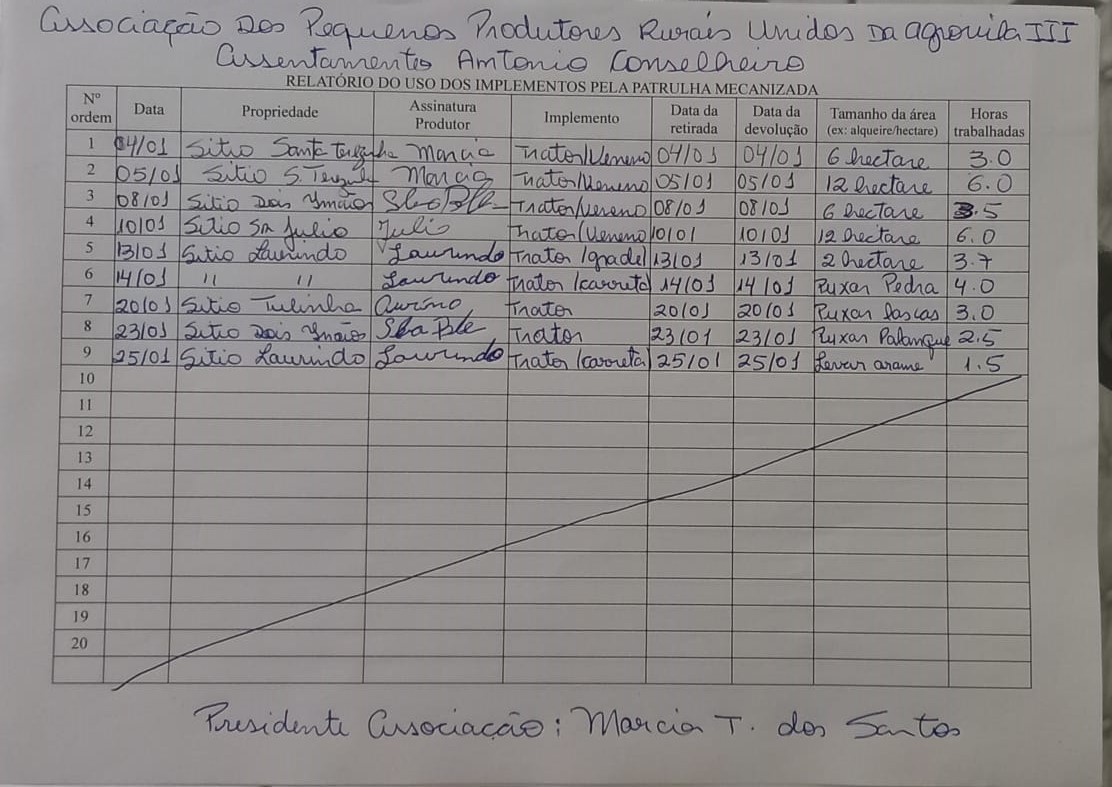 Associação Dos Pequenos Produtores Rurais Unidos Da agrovila III
Assentamento Antonio Conselheiro
RELATÓRIO DO USO DOS IMPLEMENTOS PELA PATRULHA MECANIZADA
Nº ordem Data Propriedade Assinatura Produtor Implemento Data da retirada Data da devolução Tamanho da área (ex: alqueire/hectare) Horas trabalhadas
1 04/01 Sitio Santa Terezinha Marcia Trator/Veneno 04/01 04/01 6 hectare 3.0
2 05/01 Sitio S. Terezinha Marcia Trator/Veneno 05/01 05/01 12 hectare 6.0
3 08/01 Sitio Dois Irmãos Trator/Veneno 08/01 08/01 6 hectare 3.5
4 10/01 Sitio São Julio Julio Trator/Veneno 10/01 10/01 12 hectare 6.0
5 13/01 Sitio Laurindo Laurindo Trator/grade 13/01 13/01 2 hectare 3.7
6 14/01 " " Laurindo Trator/carreta 14/01 14/01 Puxar Pedra 4.0
7 20/01 Sitio Tulinha Aurino Trator 20/01 20/01 Puxar 3.0
8 23/01 Sitio Dois Irmãos Trator 23/01 23/01 Puxar Palanque 2.5
9 25/01 Sitio Laurindo Laurindo Trator/carreta 25/01 25/01 Levar arame 1.5
10
11
12
13
14
15
16
17
18
19
20
Presidente Associação: Marcia T. dos Santos